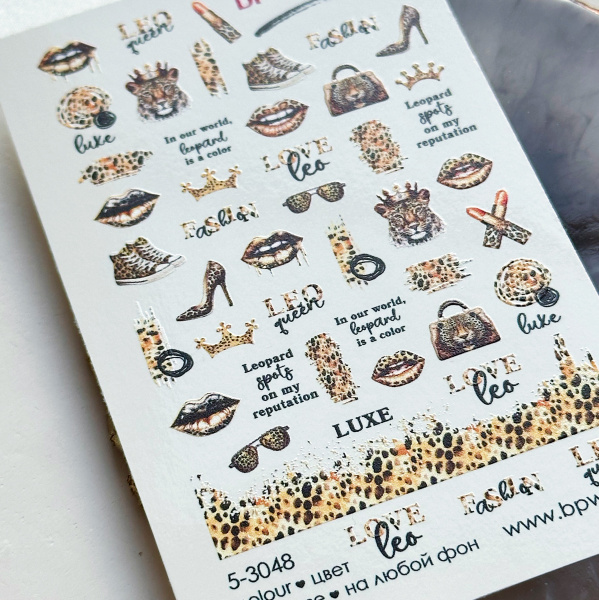 LEO
queen
FaShiON
luxe
In our world,
leopard
is a color
LOVE
leo
Leopard
spots
on my
reputation
FaShiON
LEO
queen
In our world,
leopard
is a color
luxe
Leopard
spots
on my
reputation
LOVE
leo
LUXE
LOVE
leo
FaShiON
www.bpw
5-3048
colour ♥ цвет
♥ на любой фон